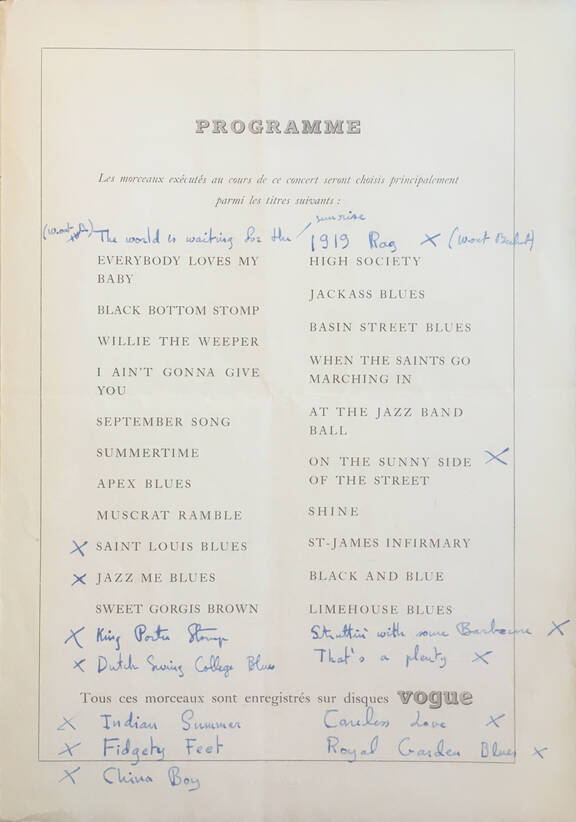 PROGRAMME
Les morceaux exécutés au cours de ce concert seront choisis principalement
parmi les titres suivants :
The world is waiting for the sunrise
EVERYBODY LOVES MY
BABY
BLACK BOTTOM STOMP
WILLIE THE WEEPER
I AIN'T GONNA GIVE
YOU
SEPTEMBER SONG
SUMMERTIME
APEX BLUES
MUSCRAT RAMBLE
X SAINT LOUIS BLUES
X JAZZ ME BLUES
SWEET GORGIS BROWN
X King Porter Stomp
X Dutch Swing College Blues
1919 Rag X
HIGH SOCIETY
JACKASS BLUES
BASIN STREET BLUES
WHEN THE SAINTS GO
MARCHING IN
AT THE JAZZ BAND
BALL
ON THE SUNNY SIDE X
OF THE STREET
SHINE
ST-JAMES INFIRMARY
BLACK AND BLUE
LIMEHOUSE BLUES
Struttin' with some Barbecue X
That's a plenty X
Tous ces morceaux sont enregistrés sur disques vogue
X Indian Summer
X Fidgety Feet
X China Boy
Careless Love X
Royal Garden Blues X